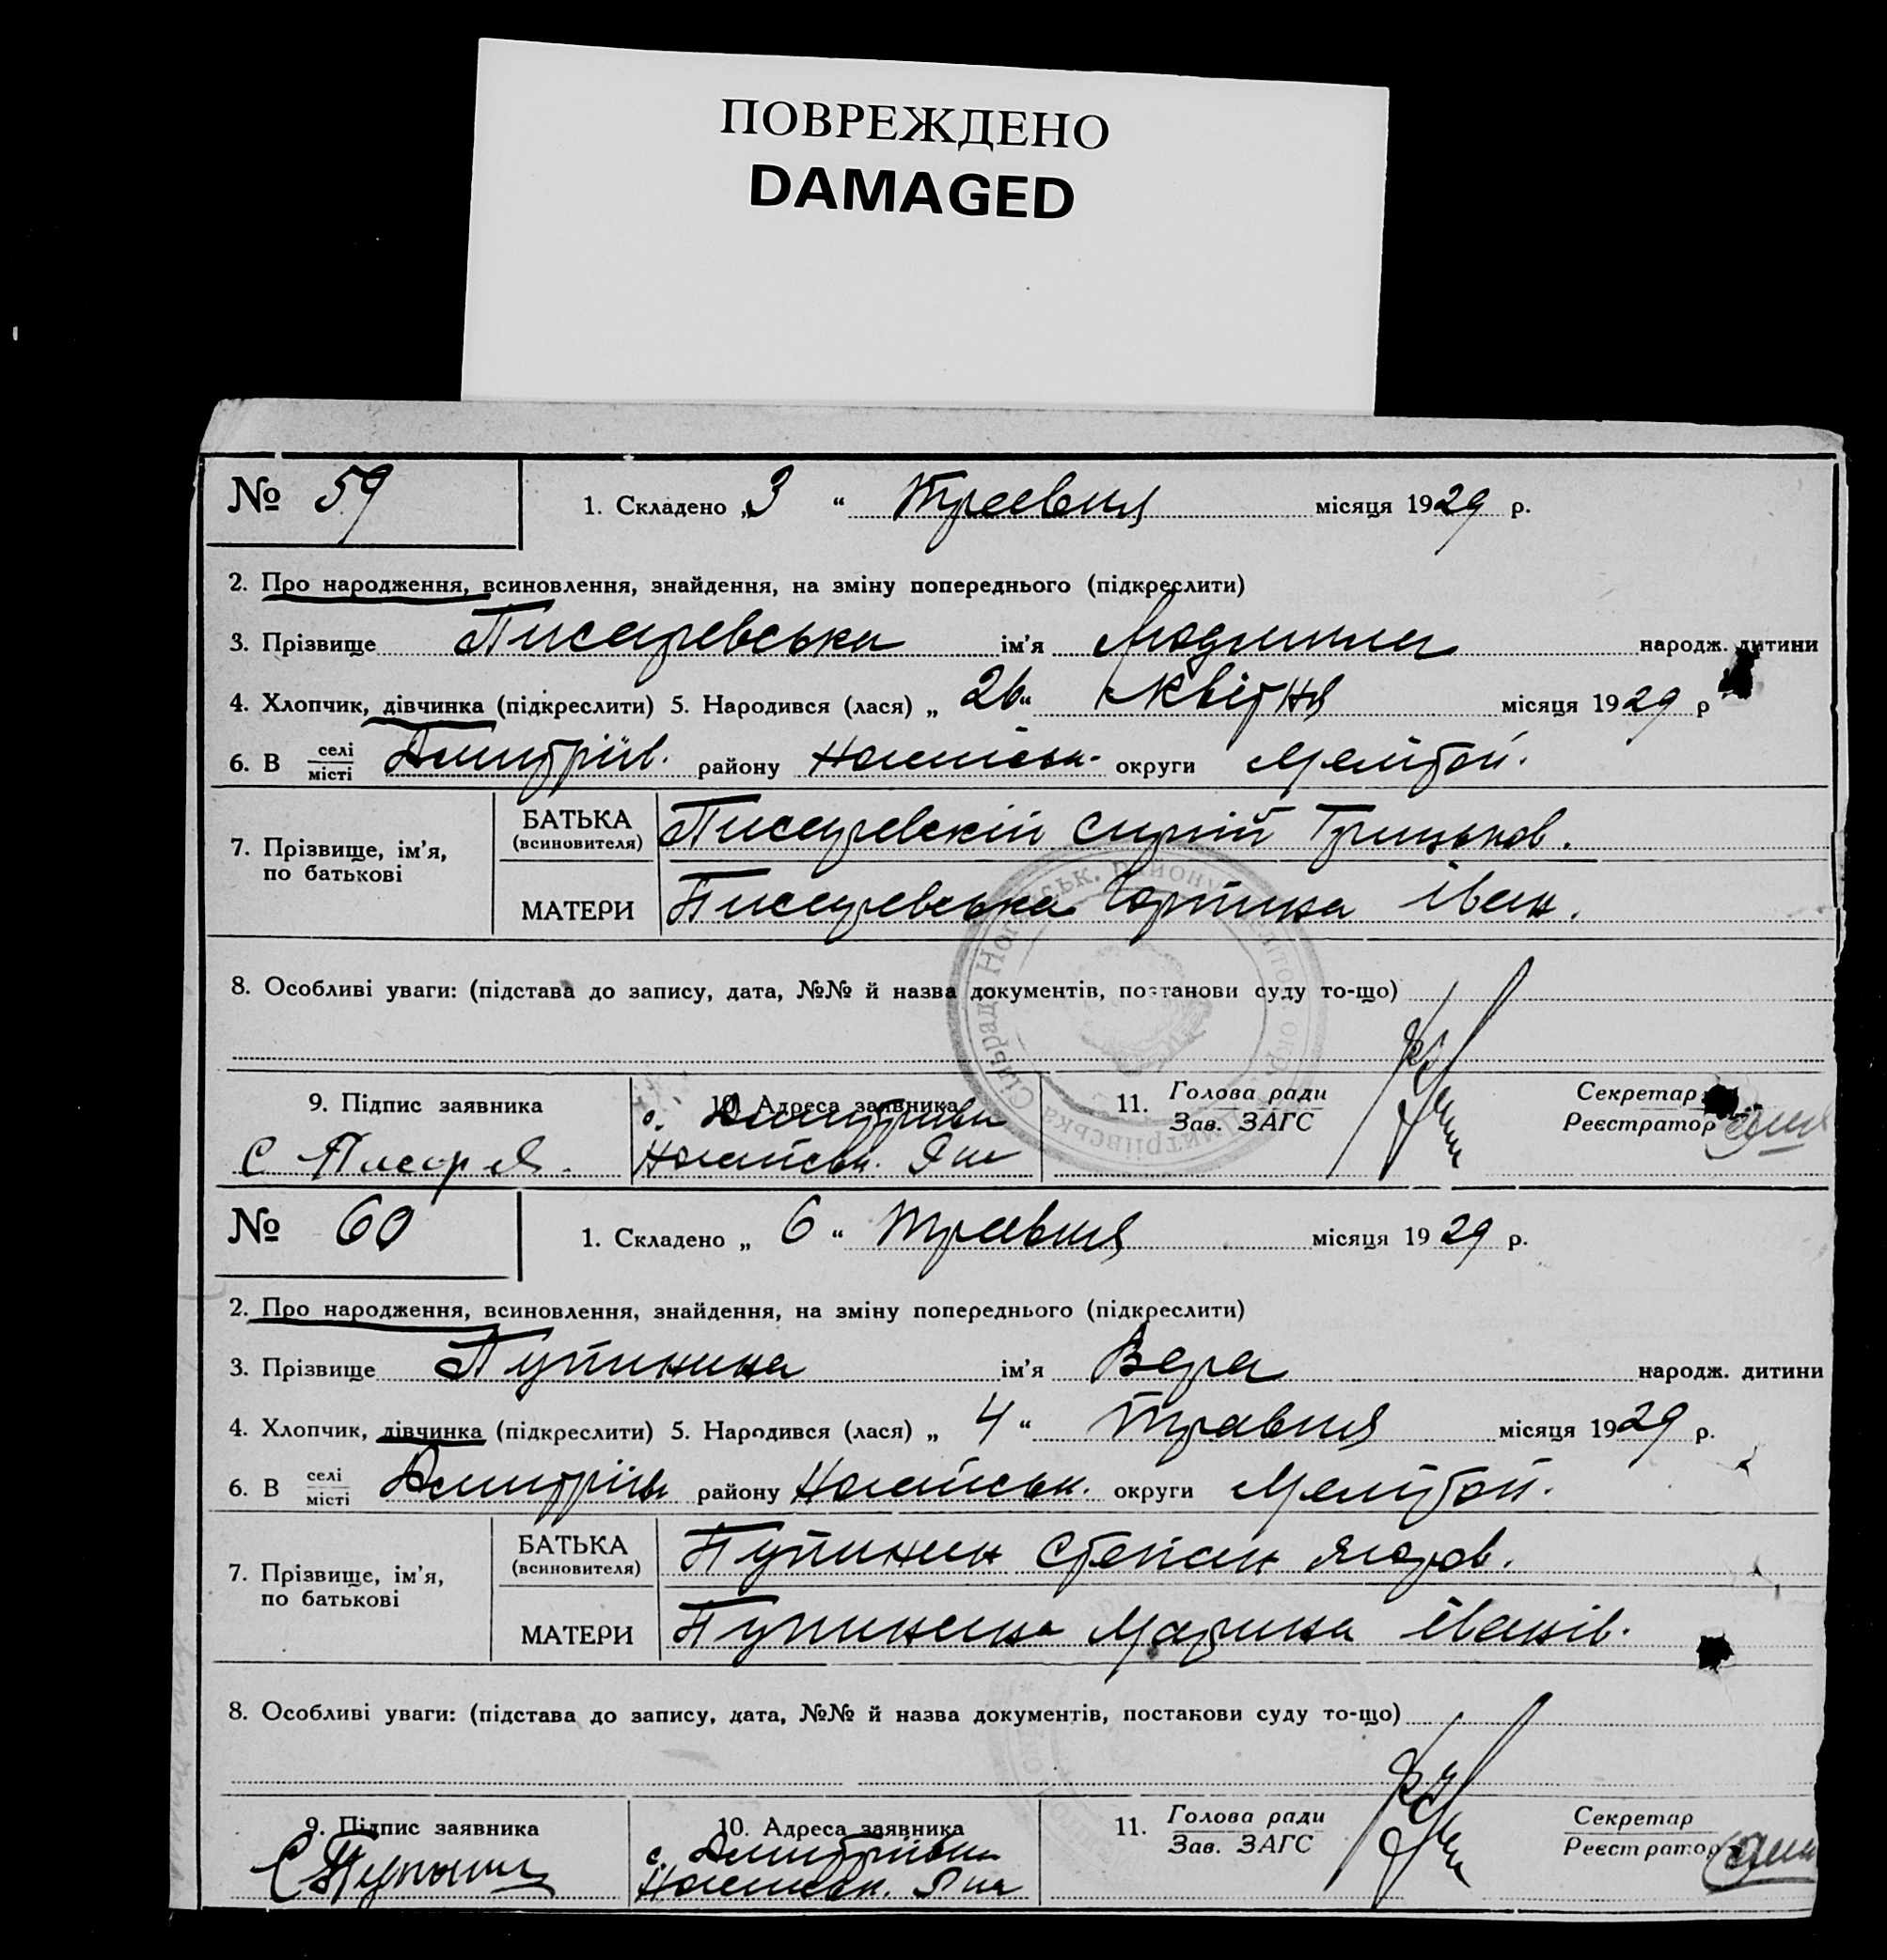 ПОВРЕЖДЕНО
DAMAGED
№ 59
1. Складено „ 3 “ Травня місяця 1929 р.
2. Про народження, всиновлення, знайдення, на зміну попереднього (підкреслити)
3. Прізвище Писаревська ім’я Людмила народж. дитини
4. Хлопчик, дівчинка (підкреслити) 5. Народився (лася) „ 26 “ Квітня місяця 1929 р
6. В селі місті Дмитріїв. району Ногайськ. округи Мелітоп.
7. Прізвище, ім’я, по батькові
БАТЬКА (всиновителя) Писаревский Сергій Грицьков.
МАТЕРИ Писаревська Іван.
8. Особливі уваги: (підстава до запису, дата, №№ й назва документів, постанови суду то-що)
9. Підпис заявника
10. Адреса заявника
11. Голова ради Зав. ЗАГС
Секретар Реєстратор
с. Дмитрівка
Ногайськ.
№ 60
1. Складено „ 6 “ Травня місяця 1929 р.
2. Про народження, всиновлення, знайдення, на зміну попереднього (підкреслити)
3. Прізвище Пупинина ім’я Вера народж. дитини
4. Хлопчик, дівчинка (підкреслити) 5. Народився (лася) „ 4 “ Травня місяця 1929 р.
6. В селі місті Дмитріїв району Ногайськ. округи Мелітоп.
7. Прізвище, ім’я, по батькові
БАТЬКА (всиновителя) Пупинин Степан
МАТЕРИ Пупинина Марина Іванів.
8. Особливі уваги: (підстава до запису, дата, №№ й назва документів, постанови суду то-що)
9. Підпис заявника
10. Адреса заявника
11. Голова ради Зав. ЗАГС
Секретар Реєстратор
с. Дмитріївка
Ногайськ.